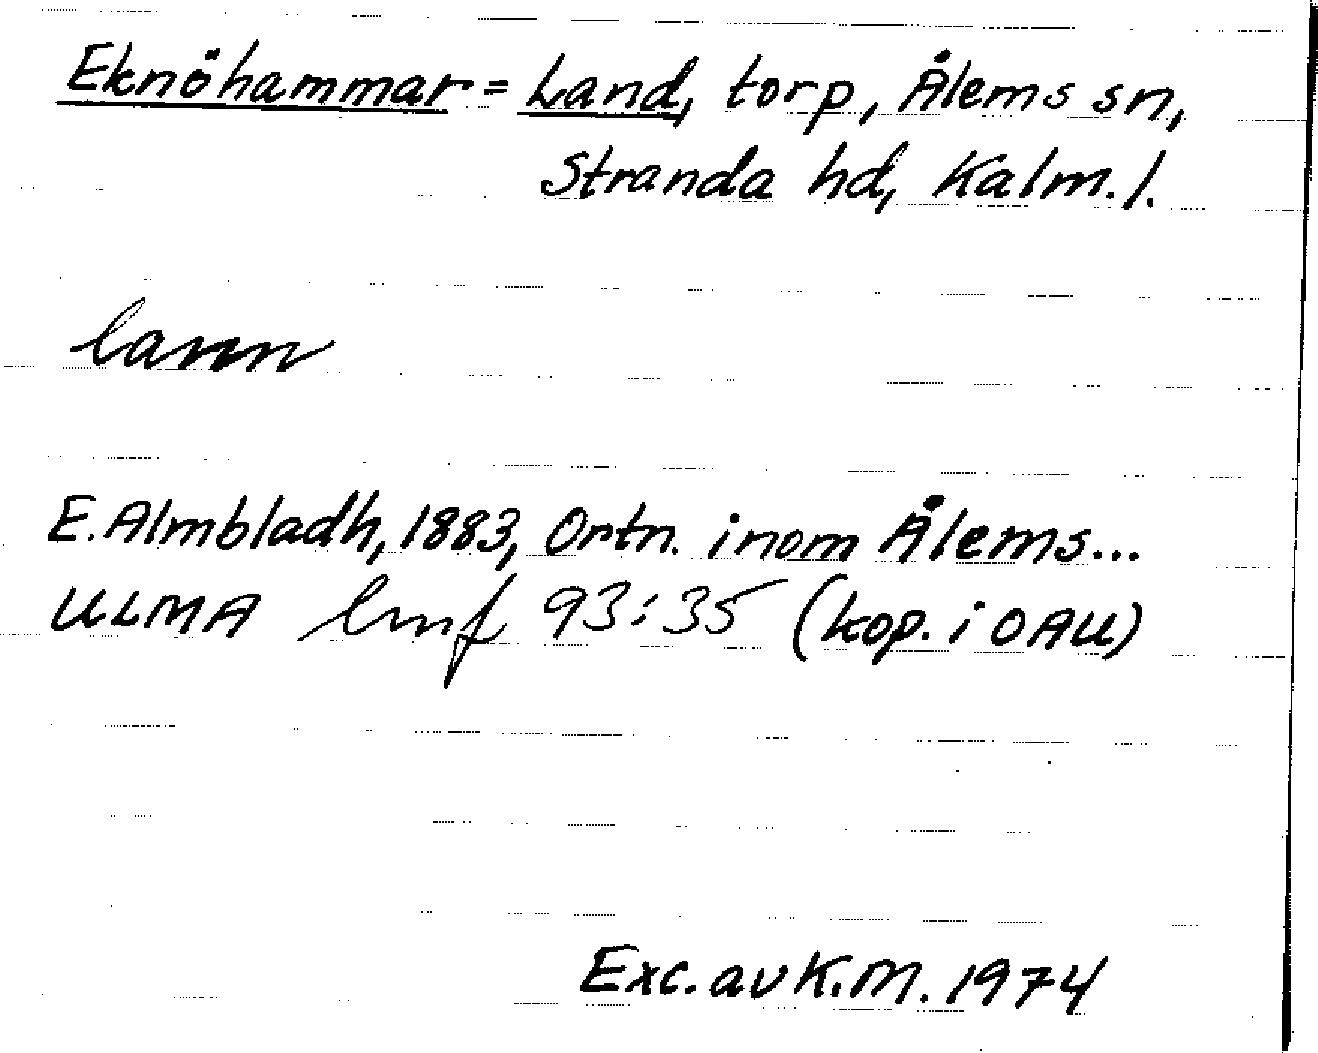 Eknöhammar = Land, torp, Ålems sn,
Stranda hd, Kalm. l.
lann
E. Almbladh, 1883, Ortn. inom Ålems...
ULMA lmf 93:35 (kop. i OAU)
Exc. av K.M. 1974